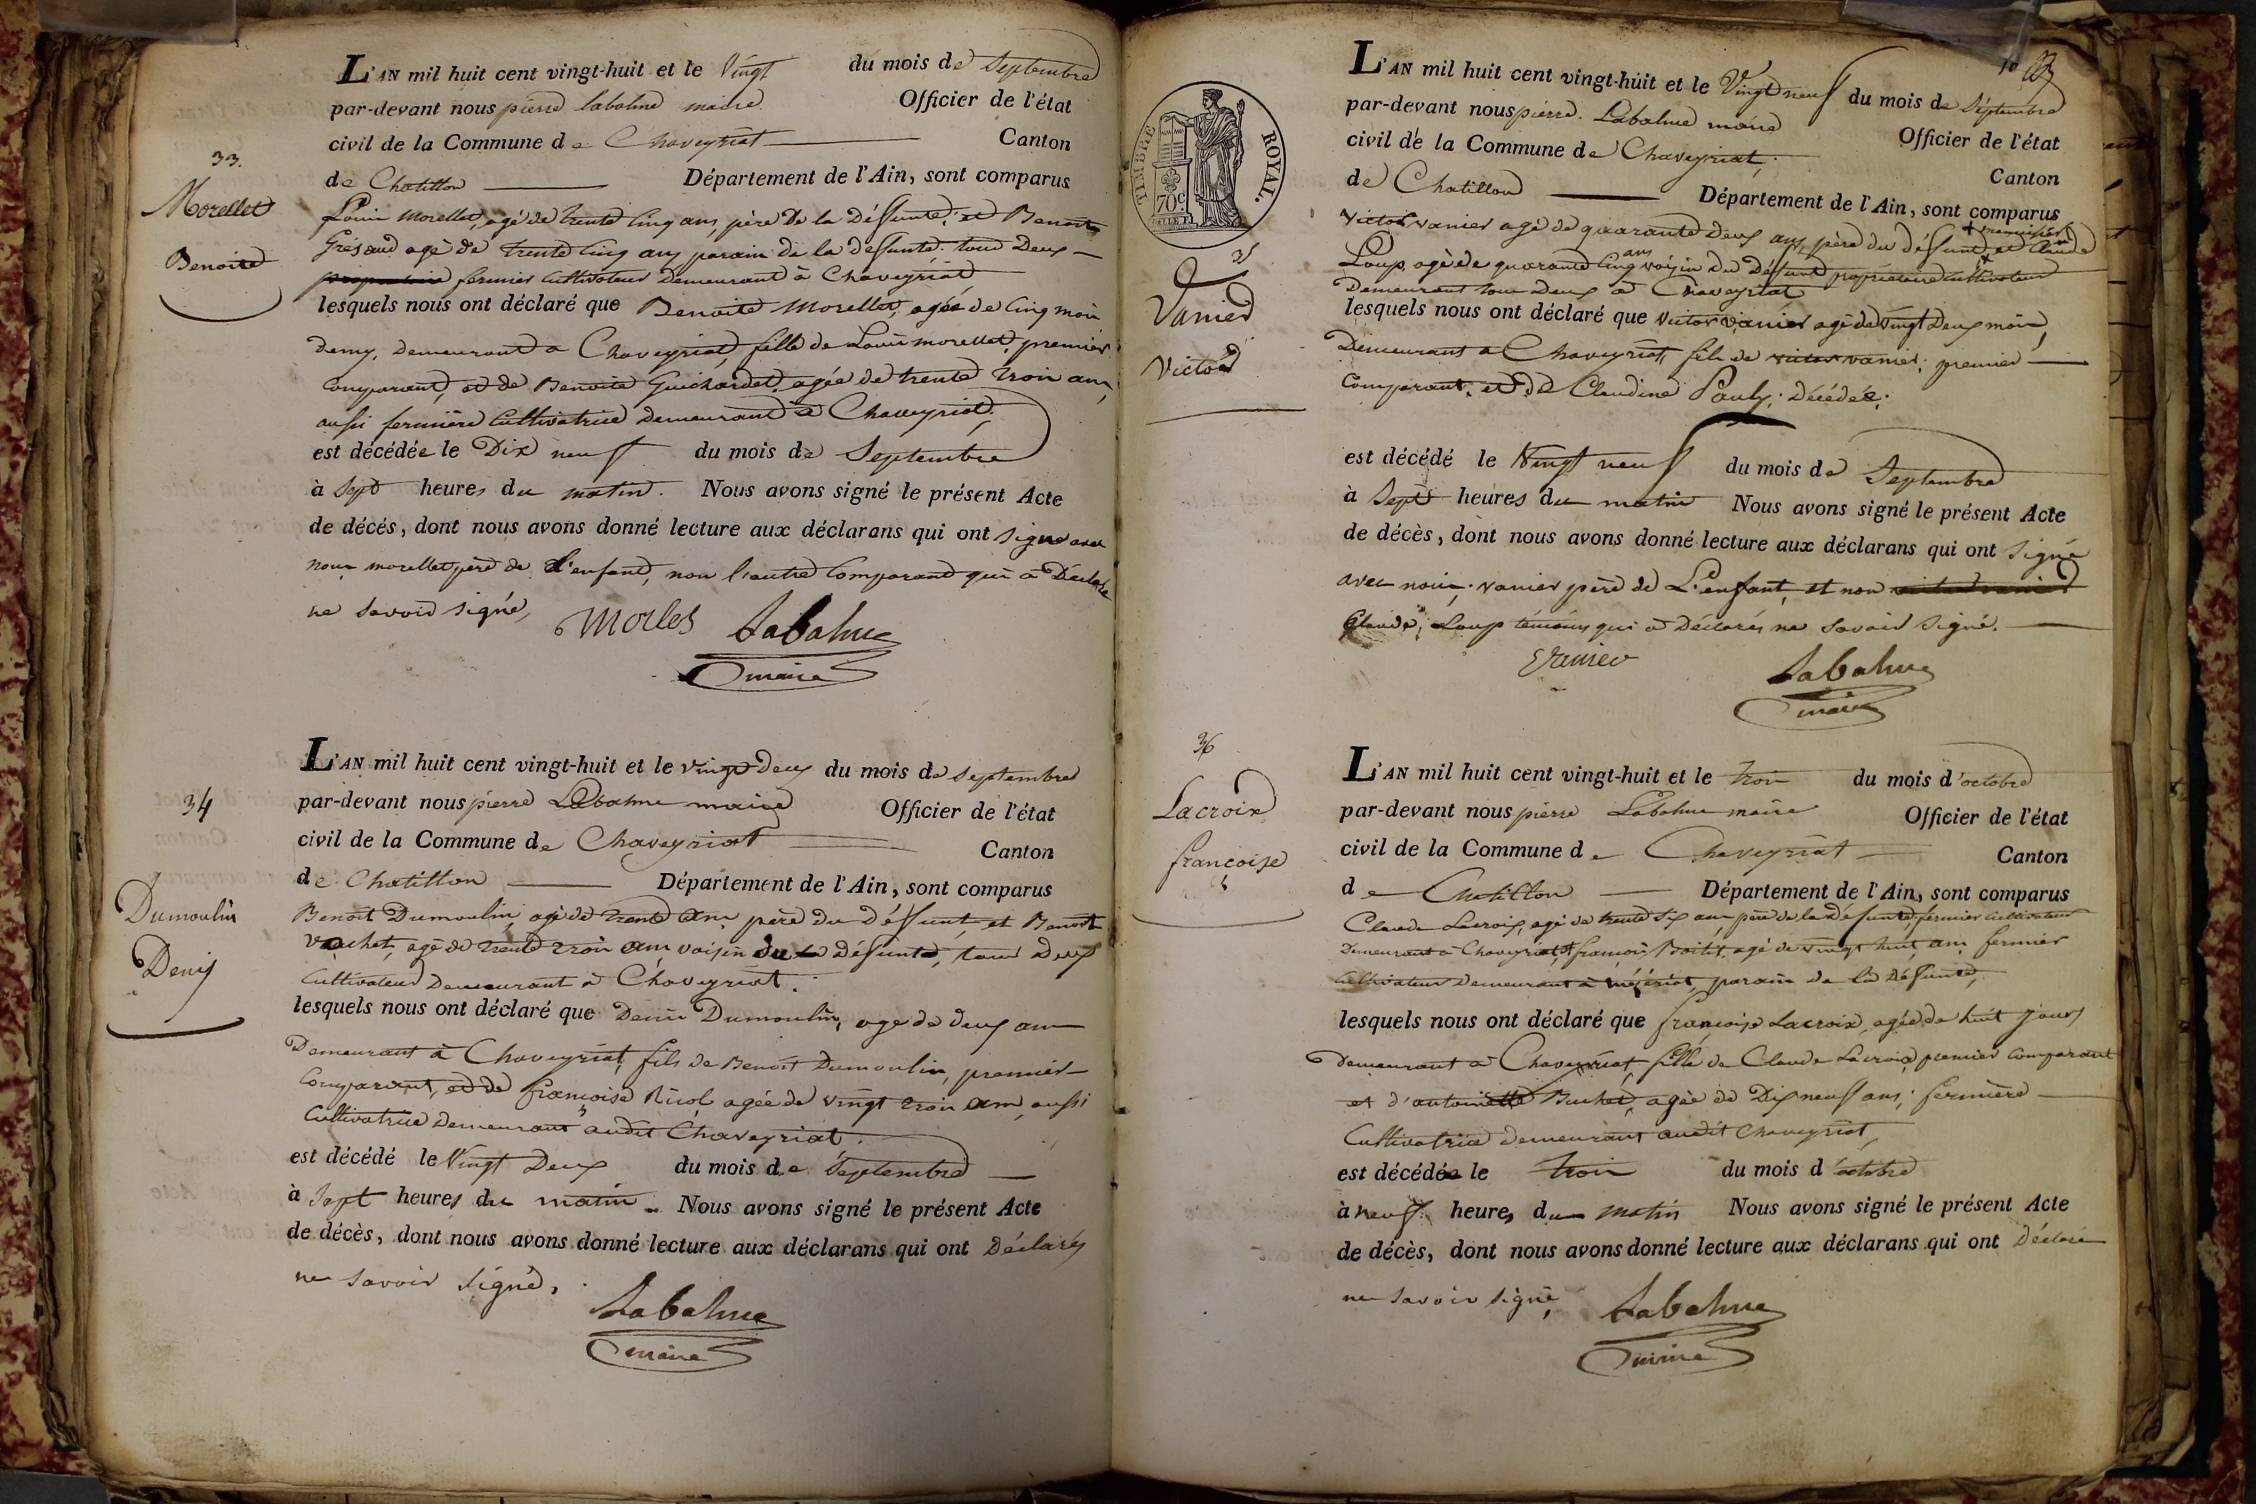 33.
Morellet
Benoite
L'AN mil huit cent vingt-huit et le Vingt du mois de Septembre
par-devant nous pierre labalme maire Officier de l'état
civil de la Commune de Chaveyriat Canton
de Chatillon Département de l'Ain, sont comparus
Louis Morellet, agé de trente Cinq ans, père de la Défunte; et Benoit
agé de trente Cinq ans parain de la défunte. tous Deux
fermier Cultivateur Demeurant à Chaveyriat
lesquels nous ont déclaré que Benoite Morellet, agée de Cinq mois
demy, demeurant a Chaveyriat, fille de Louis morellet, premier
Comparant, et de Benoite Guichardet, agée de trente trois ans,
aussi fermière Cultivatrice demeurant à Chaveyriat,
est décédée le Dix neuf du mois de Septembre
à Sept heures du matin. Nous avons signé le présent Acte
de décés, dont nous avons donné lecture aux déclarans qui ont signé avec
nous morellet père de l'enfant, non l'autre Comparant qui a Déclaré
ne Savoir signé,
Morlet Labalme
maire
34
Dumoulin
Denis
L'AN mil huit cent vingt-huit et le vingt Deux du mois de septembre
par-devant nous pierre Labalme maire Officier de l'état
civil de la Commune de Chaveyriat Canton
de Chatillon Département de l'Ain, sont comparus
Benoit Dumoulin, agé de trente ans, père du Défunt, et Benoit
Vachet, agé de trente trois ans, voisin du Défunte, tous Deux
Cultivateur Demeurant à Chaveyriat.
lesquels nous ont déclaré que Denis Dumoulin, age de deux ans
Demeurant à Chaveyriat, fils de Benoit Dumoulin, premier
Comparant, et de françoise Ricol agée de vingt trois ans, aussi
Cultivatrice Demeurant audit Chaveyriat.
est décédé le Vingt Deux du mois de Septembre
à Sept heures du matin. Nous avons signé le présent Acte
de décès, dont nous avons donné lecture aux déclarans qui ont Déclarés
ne Savoir Signé,
Labalme
maire
10
TIMBRE ROYAL.
70c.
35
Vanier
Victor
L'AN mil huit cent vingt-huit et le Vingt neuf du mois de Séptembre
par-devant nous pierre Labalme maire Officier de l'état
civil de la Commune de Chaveyriat, Canton
de Chatillon Département de l'Ain, sont comparus
Victor Vanier agé de quarante deux ans, père du défunt et Claude
Loup, agé de quarante Cinq ans voisin du Défunt propriétaire Cultivateur
Demeurant tous Deux à Chaveyriat
lesquels nous ont déclaré que Victor Vanier agé de Vingt Deux mois,
Demeurant a Chaveyriat, fils de victor vanier, premier
Comparant, et de Claudine Pauly; Décédée;
est décédé le Vingt neuf du mois de Septembre
à Sept heures du matin Nous avons signé le présent Acte
de décès, dont nous avons donné lecture aux déclarans qui ont Signé
avec nous, vanier père de L'enfant, et non
Claude, Loup témoins qui a Déclarés ne Savoir Signé.
Vanier Labalme
maire
36
Lacroix
françoise
L'AN mil huit cent vingt-huit et le trois du mois d'octobre
par-devant nous pierre Labalme maire Officier de l'état
civil de la Commune de Chaveyriat Canton
de Chatillon Département de l'Ain, sont comparus
Claude Lacroix, agé de trente Six ans, père de la défunte, fermier Cultivateur
Demeurant à Chaveyriat, et françois agé de vingt huit ans fermier
Cultivateur Demeurant à mézériat, parain de la Défunte,
lesquels nous ont déclaré que françoise Lacroix, agée de huit Jours
Demeurant à Chaveyriat, fille de Claude Lacroix premier Comparant
et d'antoinette Buchet, agée de Dix neuf ans; fermière
Cultivatrice demeurant audit Chaveyriat,
est décédée le trois du mois d'octobre
à neuf heures du matin Nous avons signé le présent Acte
de décès, dont nous avons donné lecture aux déclarans qui ont Déclaré
ne Savoir signé, Labalme
maire